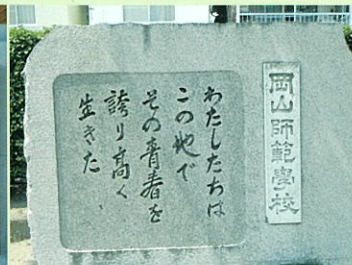 岡山師範學校
わたしたちは
この地で
その青春を
誇り高く
生きた